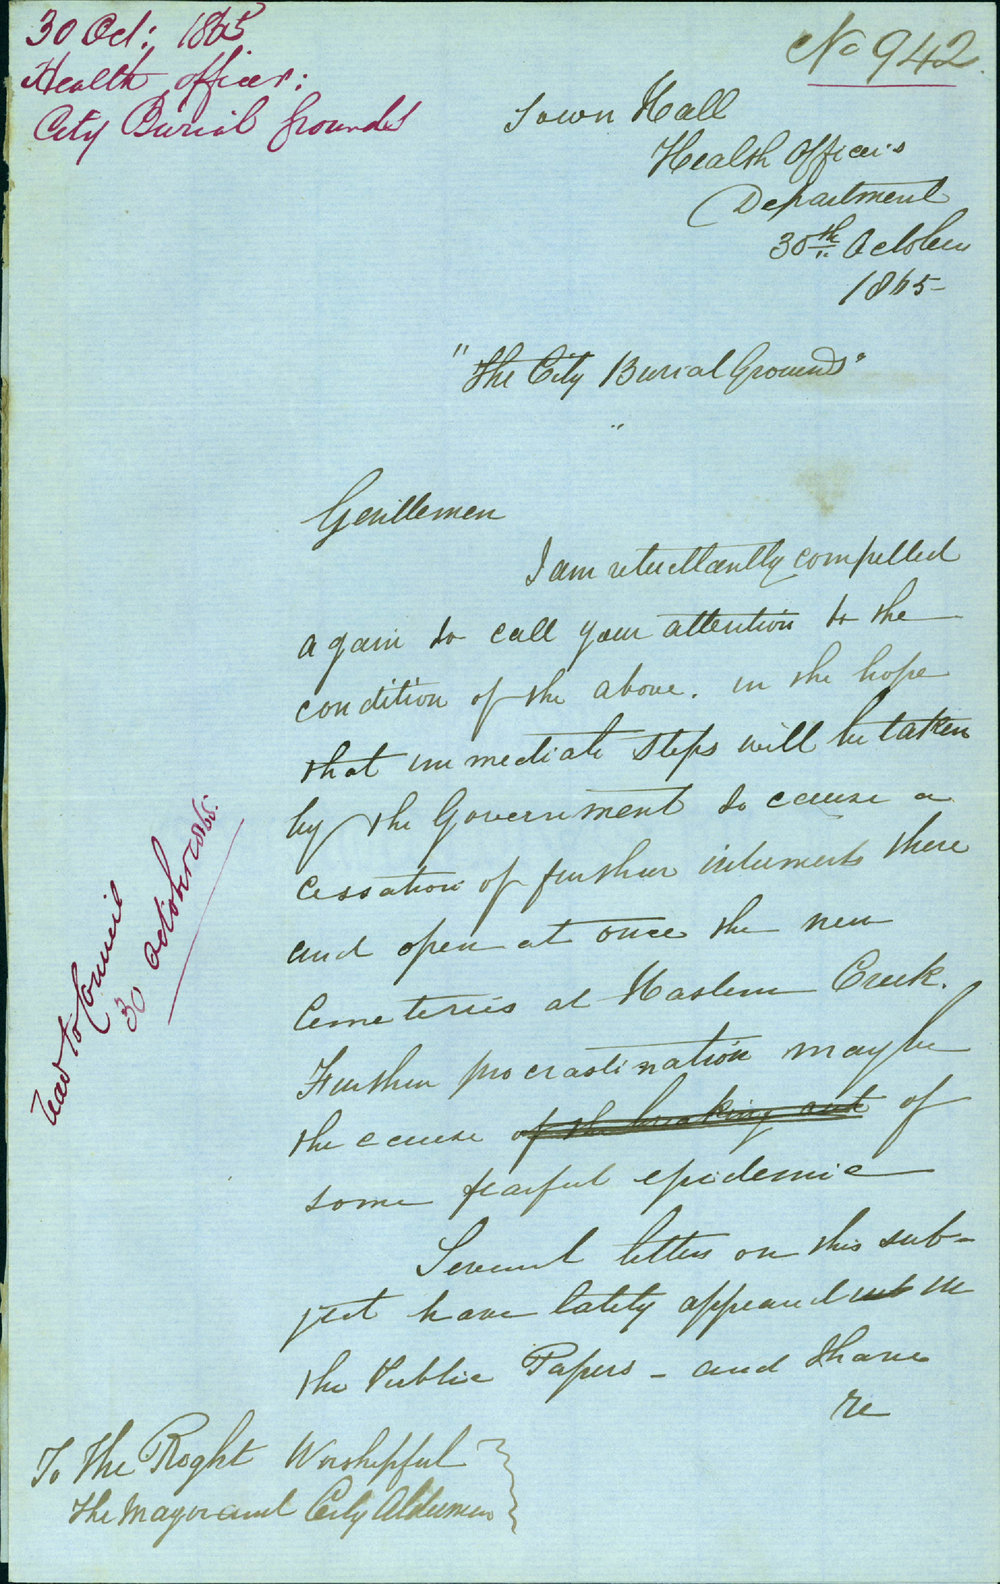 30 Oct: 1865
Health officer:
City Burial Grounds
No 942
Town Hall
Health Officer's
Department
30th October
1865
"The City Burial Grounds"
Gentlemen
I am reluctantly compelled
again to call your attention to the
condition of the above. in the hope
that immediate steps will be taken
by the Government to cause a
cessation of further interments there
and open at once the new
Cemeteries at Haslem Creek.
Further procrastination may be
the cause of the breaking out of
some fearful epidemic
Several letters on this sub-
ject have lately appeared in
the Public Papers - and I have
re
To The Right Worshipful
The Mayor and City Aldermen
read to Council
30 October 1865.